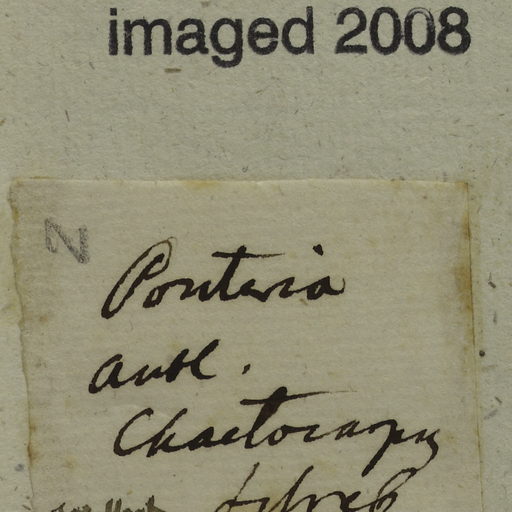 imaged 2008
N
Pouteria
Aubl.
Chaetocarpus
Schreb